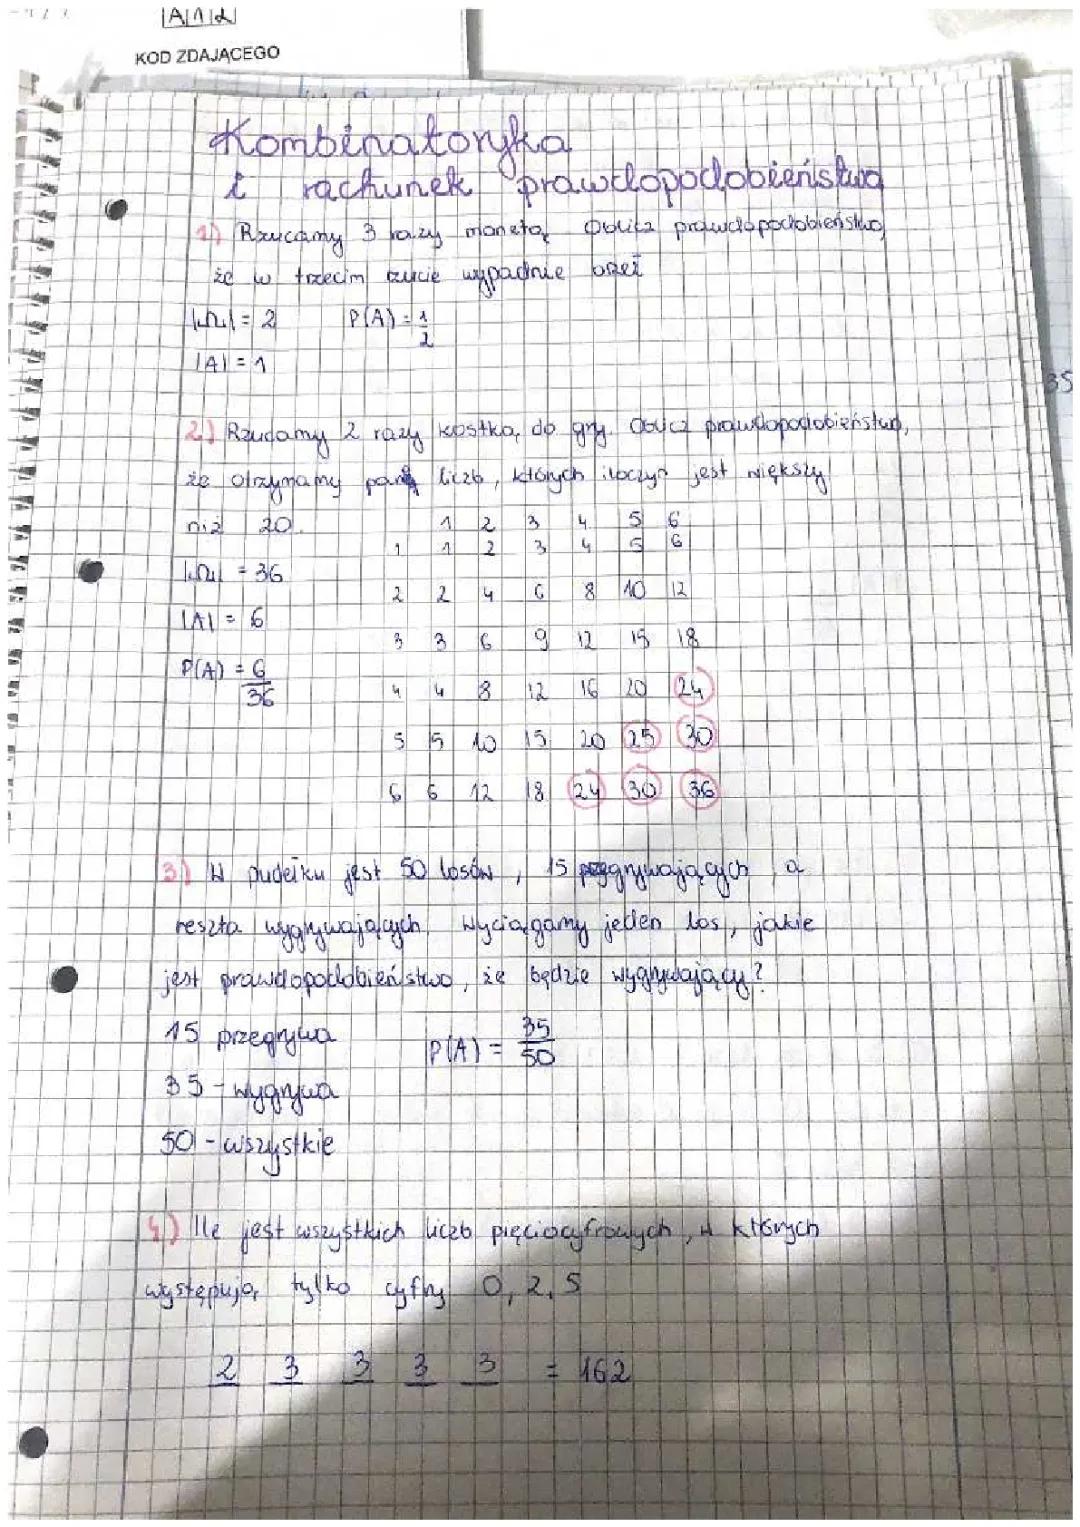 |A|1|2|
KOD ZDAJĄCEGO
Kombinatoryka
i rachunek prawdopodobieństwa
1) Rzucamy 3 razy monetą. Oblicz prawdopodobieństwo,
że w trzecim rzucie wypadnie orzeł
|Ω| = 2 P(A) = 1/2
|A| = 1
35
2.) Rzucamy 2 razy kostką do gry. Oblicz prawdopodobieństwo,
że otrzymamy parę liczb, których iloczyn jest większy
niż 20.
1 2 3 4 5 6
1 1 2 3 4 5 6
|Ω| = 36
2 2 4 6 8 10 12
|A| = 6
3 3 6 9 12 15 18
P(A) = 6/36
4 4 8 12 16 20 24
5 5 10 15 20 25 30
6 6 12 18 24 30 36
3.) W pudełku jest 50 losów, 15 przegrywających a
reszta wygrywających. Wyciągamy jeden los, jakie
jest prawdopodobieństwo, że będzie wygrywający?
15 przegrywa P(A) = 35/50
35 - wygrywa
50 - wszystkie
4) Ile jest wszystkich liczb pięciocyfrowych, w których
występują tylko cyfry 0, 2, 5
2 3 3 3 3 = 162